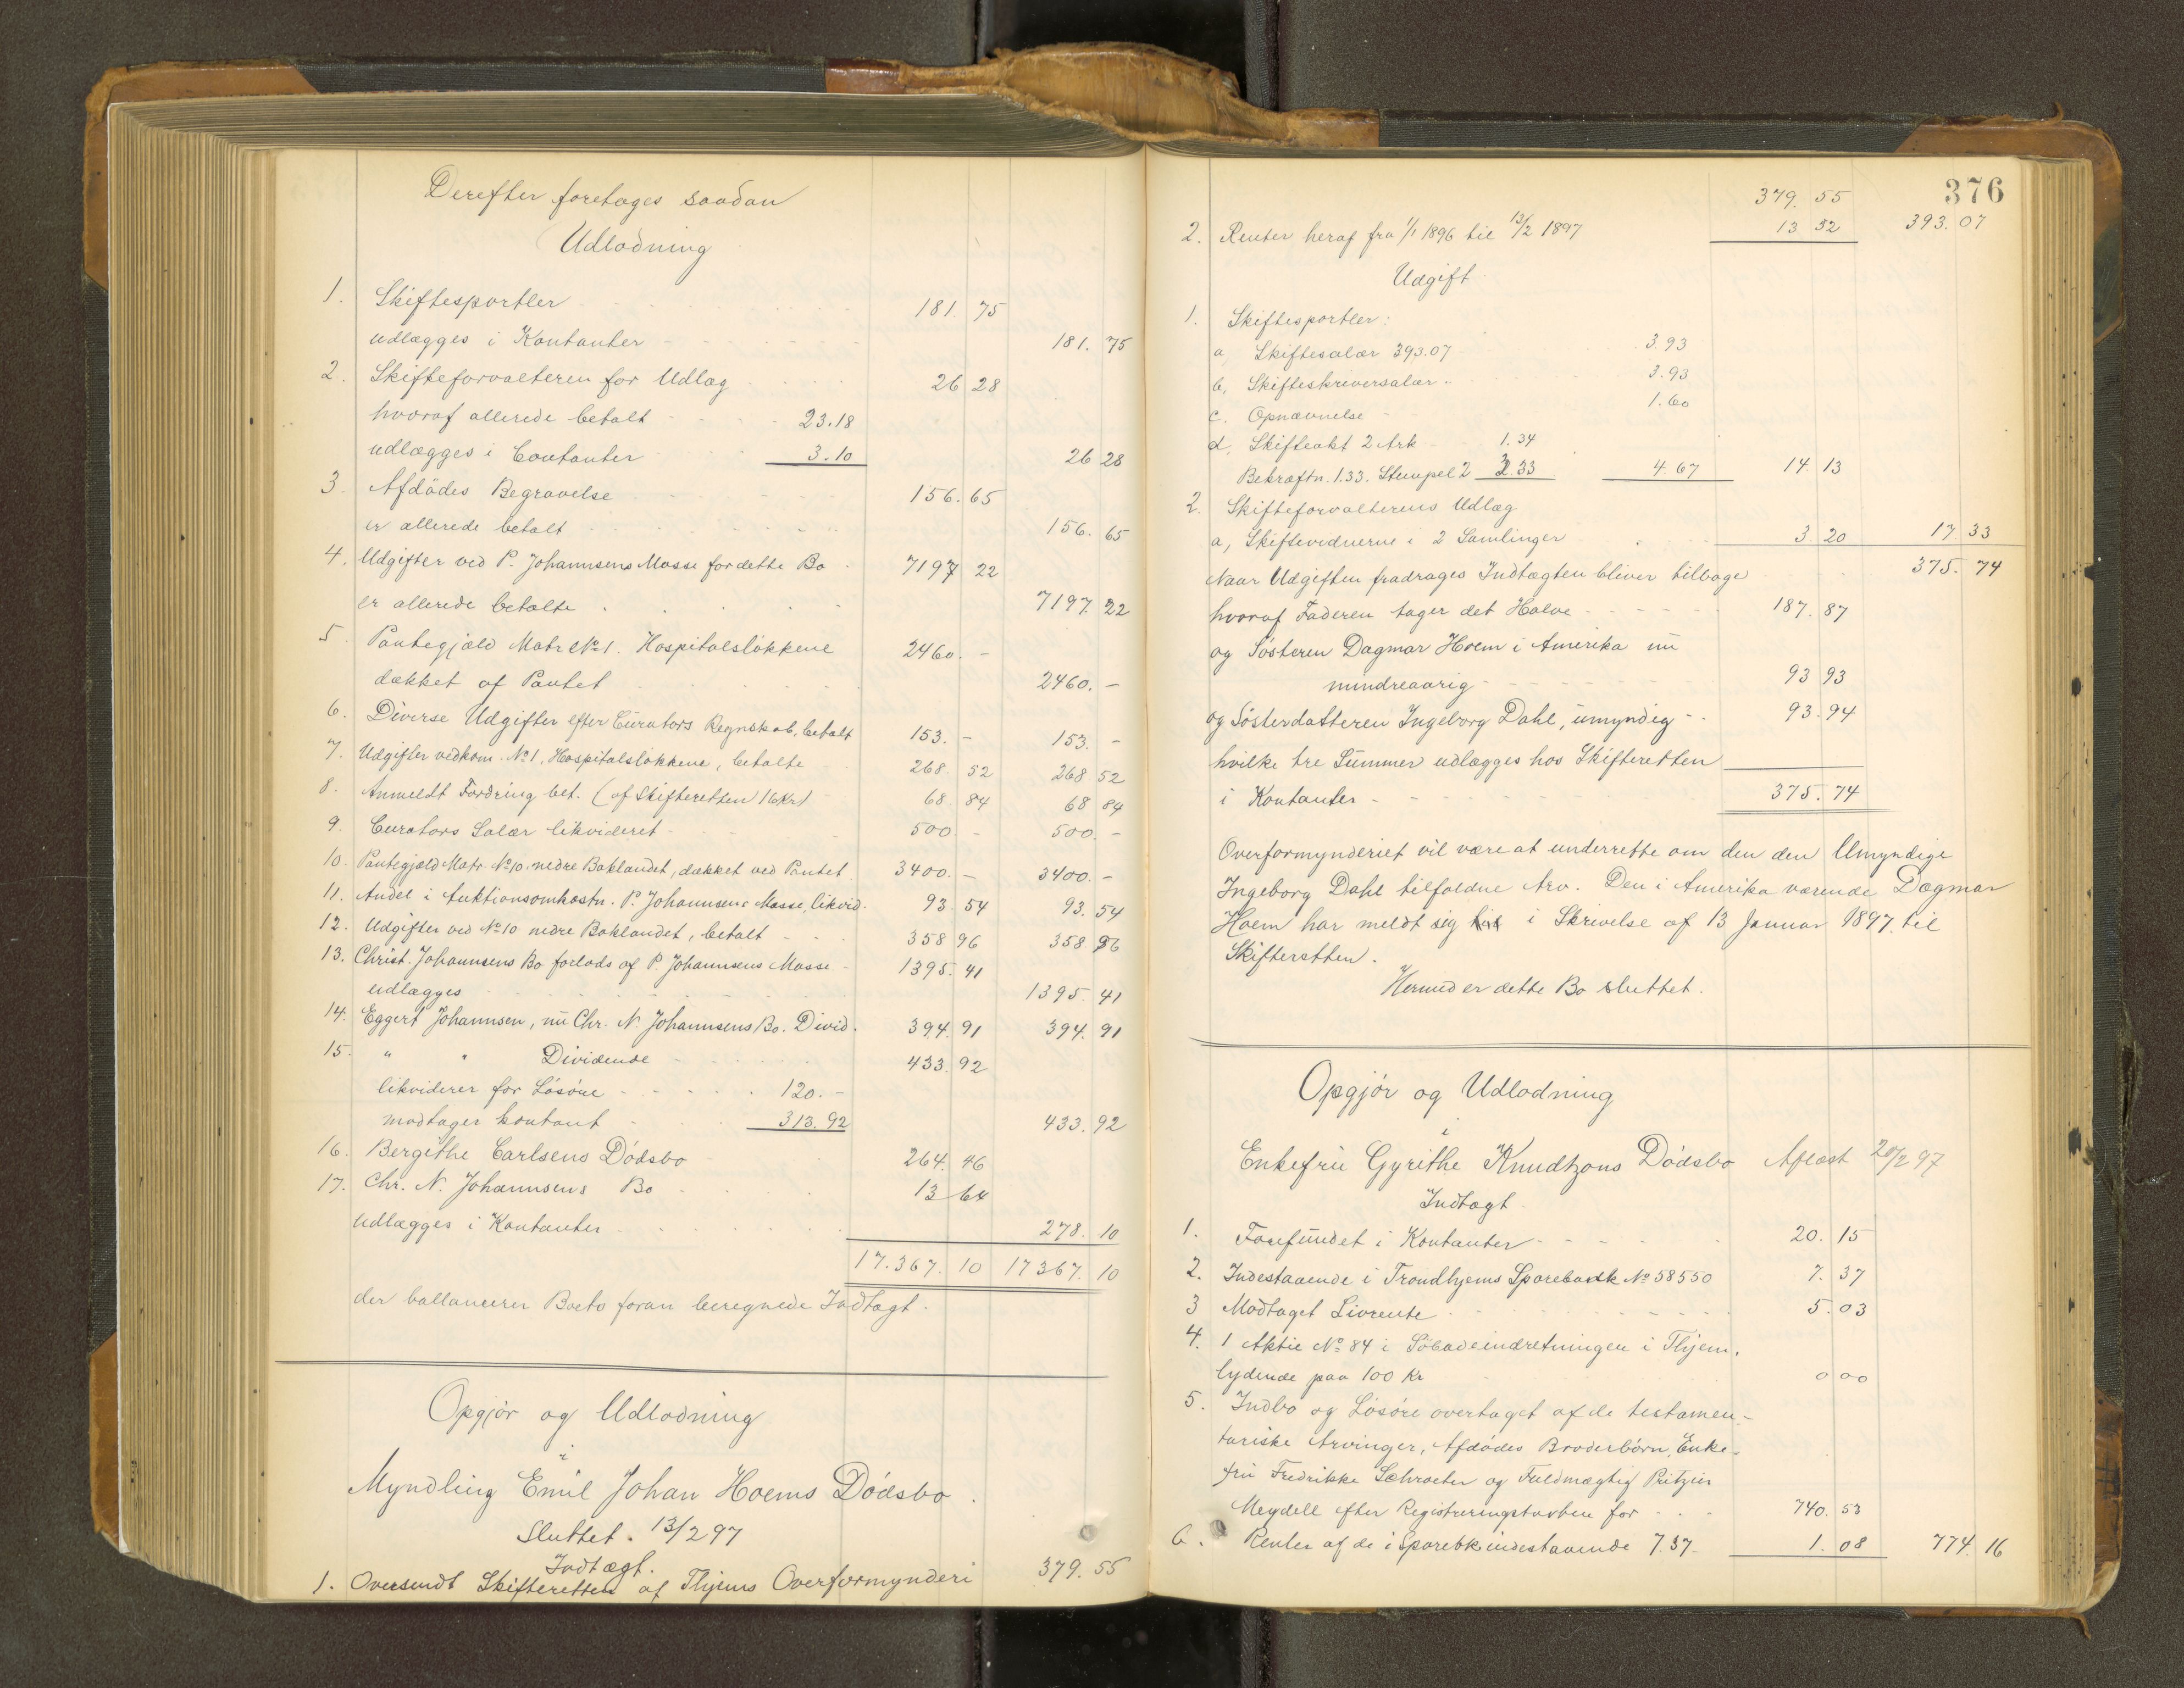 Derefter foretages saadan
Udlodning
1. Skiftesportler 181. 75
udlægges i Kontanter 181. 75
2. Skifteforvalteren for Udlæg 26 28
hvoraf allerede betalt 23.18
udlægges i Contanter 3.10 26 28
3. Afdödes Begravelse 156. 65
er allerede betalt 156. 65
4. Udgifter ved P. Johannsens Masse for dette Bo 7197 22
er allerede betalte 7197. 22
5. Pantegjæld Matr No 1. Hospitalslökkene 2460. -
dækket af Pantet 2460. -
6. Diverse Udgifter efter Curators Regnskab, betalt 153. - 153. -
7. Udgifter vedkom. No 1, Hospitalslökkene, betalte 268. 52 268 52
8. Anmeldt Fordring bet. (af Skifteretten 16 Kr) 68. 84 68 84
9. Curators Salær likvideret 500. - 500. -
10. Pantegjæld Matr. No 10. nedre Baklandet, dækket ved Pantet 3400. - 3400. -
11. Andel i Auktionsomkostn. P. Johannsens Masse, likvid. 93. 54 93. 54
12. Udgifter ved No 10 nedre Baklandet, betalt 358 96 358 96
13. Christ. Johannsens Bo forlods af P. Johannsens Masse 1395. 41
udlægges 1395. 41
14. Eggert Johannsen, nu Chr. N. Johannsens Bo. Divid. 394. 91 394. 91
15. " " Dividende 433. 92
likviderer for Lösöre 120. -
modtager kontant 313. 92 433. 92
16. Bergithe Carlsens Dödsbo 264. 46
17. Chr. N. Johannsens Bo 13 64
udlægges i Kontanter 278. 10
17.367. 10 17367. 10
der ballancerer Boets foran beregnede Indtægt.
Opgjör og Udlodning
i
Myndling Emil Johan Hoems Dödsbo.
Sluttet. 13/2 97
Indtægt.
1. Oversendt Skifteretten af Thjems Overformynderi 379. 55
376
379. 55
2. Renter heraf fra 1/1 1896 til 13/2 1897 13 52 393. 07
Udgift
1. Skiftesportler:
a, Skiftesalær 393.07 3.93
b, Skifteskriversalær 3.93
c. Opnævnelse 1.60
d, Skifteakt 2 Ark 1.34
Bekræftn. 1.33. Stempel 2 3.33 4.67 14. 13
2. Skifteforvalterens Udlæg
a, Skiftevidnerne i 2 Samlinger 3. 20 17 33
Naar Udgiften fradrages Indtægten bliver tilbage 375. 74
hvoraf Faderen tager det Halve 187. 87
og Sösteren Dagmar Hoem i Amerika nu
mindreaarig 93 93
og Sösterdatteren Ingeborg Dahl, umyndig 93. 94
hvilke tre Summer udlægges hos Skifteretten
i Kontanter 375. 74
Overformynderiet vil være at underrette om den den Umyndige
Ingeborg Dahl tilfaldne Arv. Den i Amerika værende Dagmar
Hoem har meldt sig i Skrivelse af 13 Januar 1897. til
Skifteretten.
Hermed er dette Bo sluttet.
Opgjör og Udlodning
i
Enkefru Gyrithe Knudtzons Dödsbo Aflæst 20/2 97
Indtægt
1. Forefundet i Kontanter 20. 15
2. Indestaaende i Trondhjems Sparebank No 58550 7. 37
3 Modtaget Livrente 5. 03
4. 1 Aktie No 84 i Söbadeindretningen i Thjem,
lydende paa 100 Kr 0 00
5. Indbo og Lösöre overtaget af de testamen-
tariske Arvinger, Afdödes Broderbörn, Enke-
fru Fredrikke Schroeter og Fuldmægtig Pritzier
Meydell efter Registreringstaxten for 740. 53
6. Renter af de i Sparebk indestaaende 7.37 1. 08 774. 16